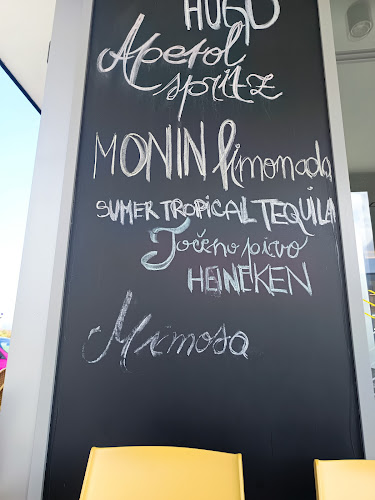 HUGO
Aperol
spritz
MONIN limonada
SUMER TROPICAL TEQUILA
Točeno pivo
HEINEKEN
Mimosa